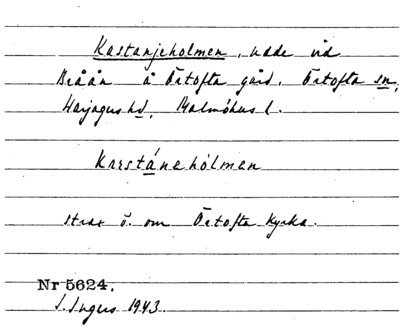 Kastanjeholmen, vade vid
Bråån å Örtofta gård, Örtofta sn,
Harjagers hd, Malmöhus l.
Karstáneholmen
strax ö. om Örtofta kyrka.
Nr 5624.
I. Ingers 1943.